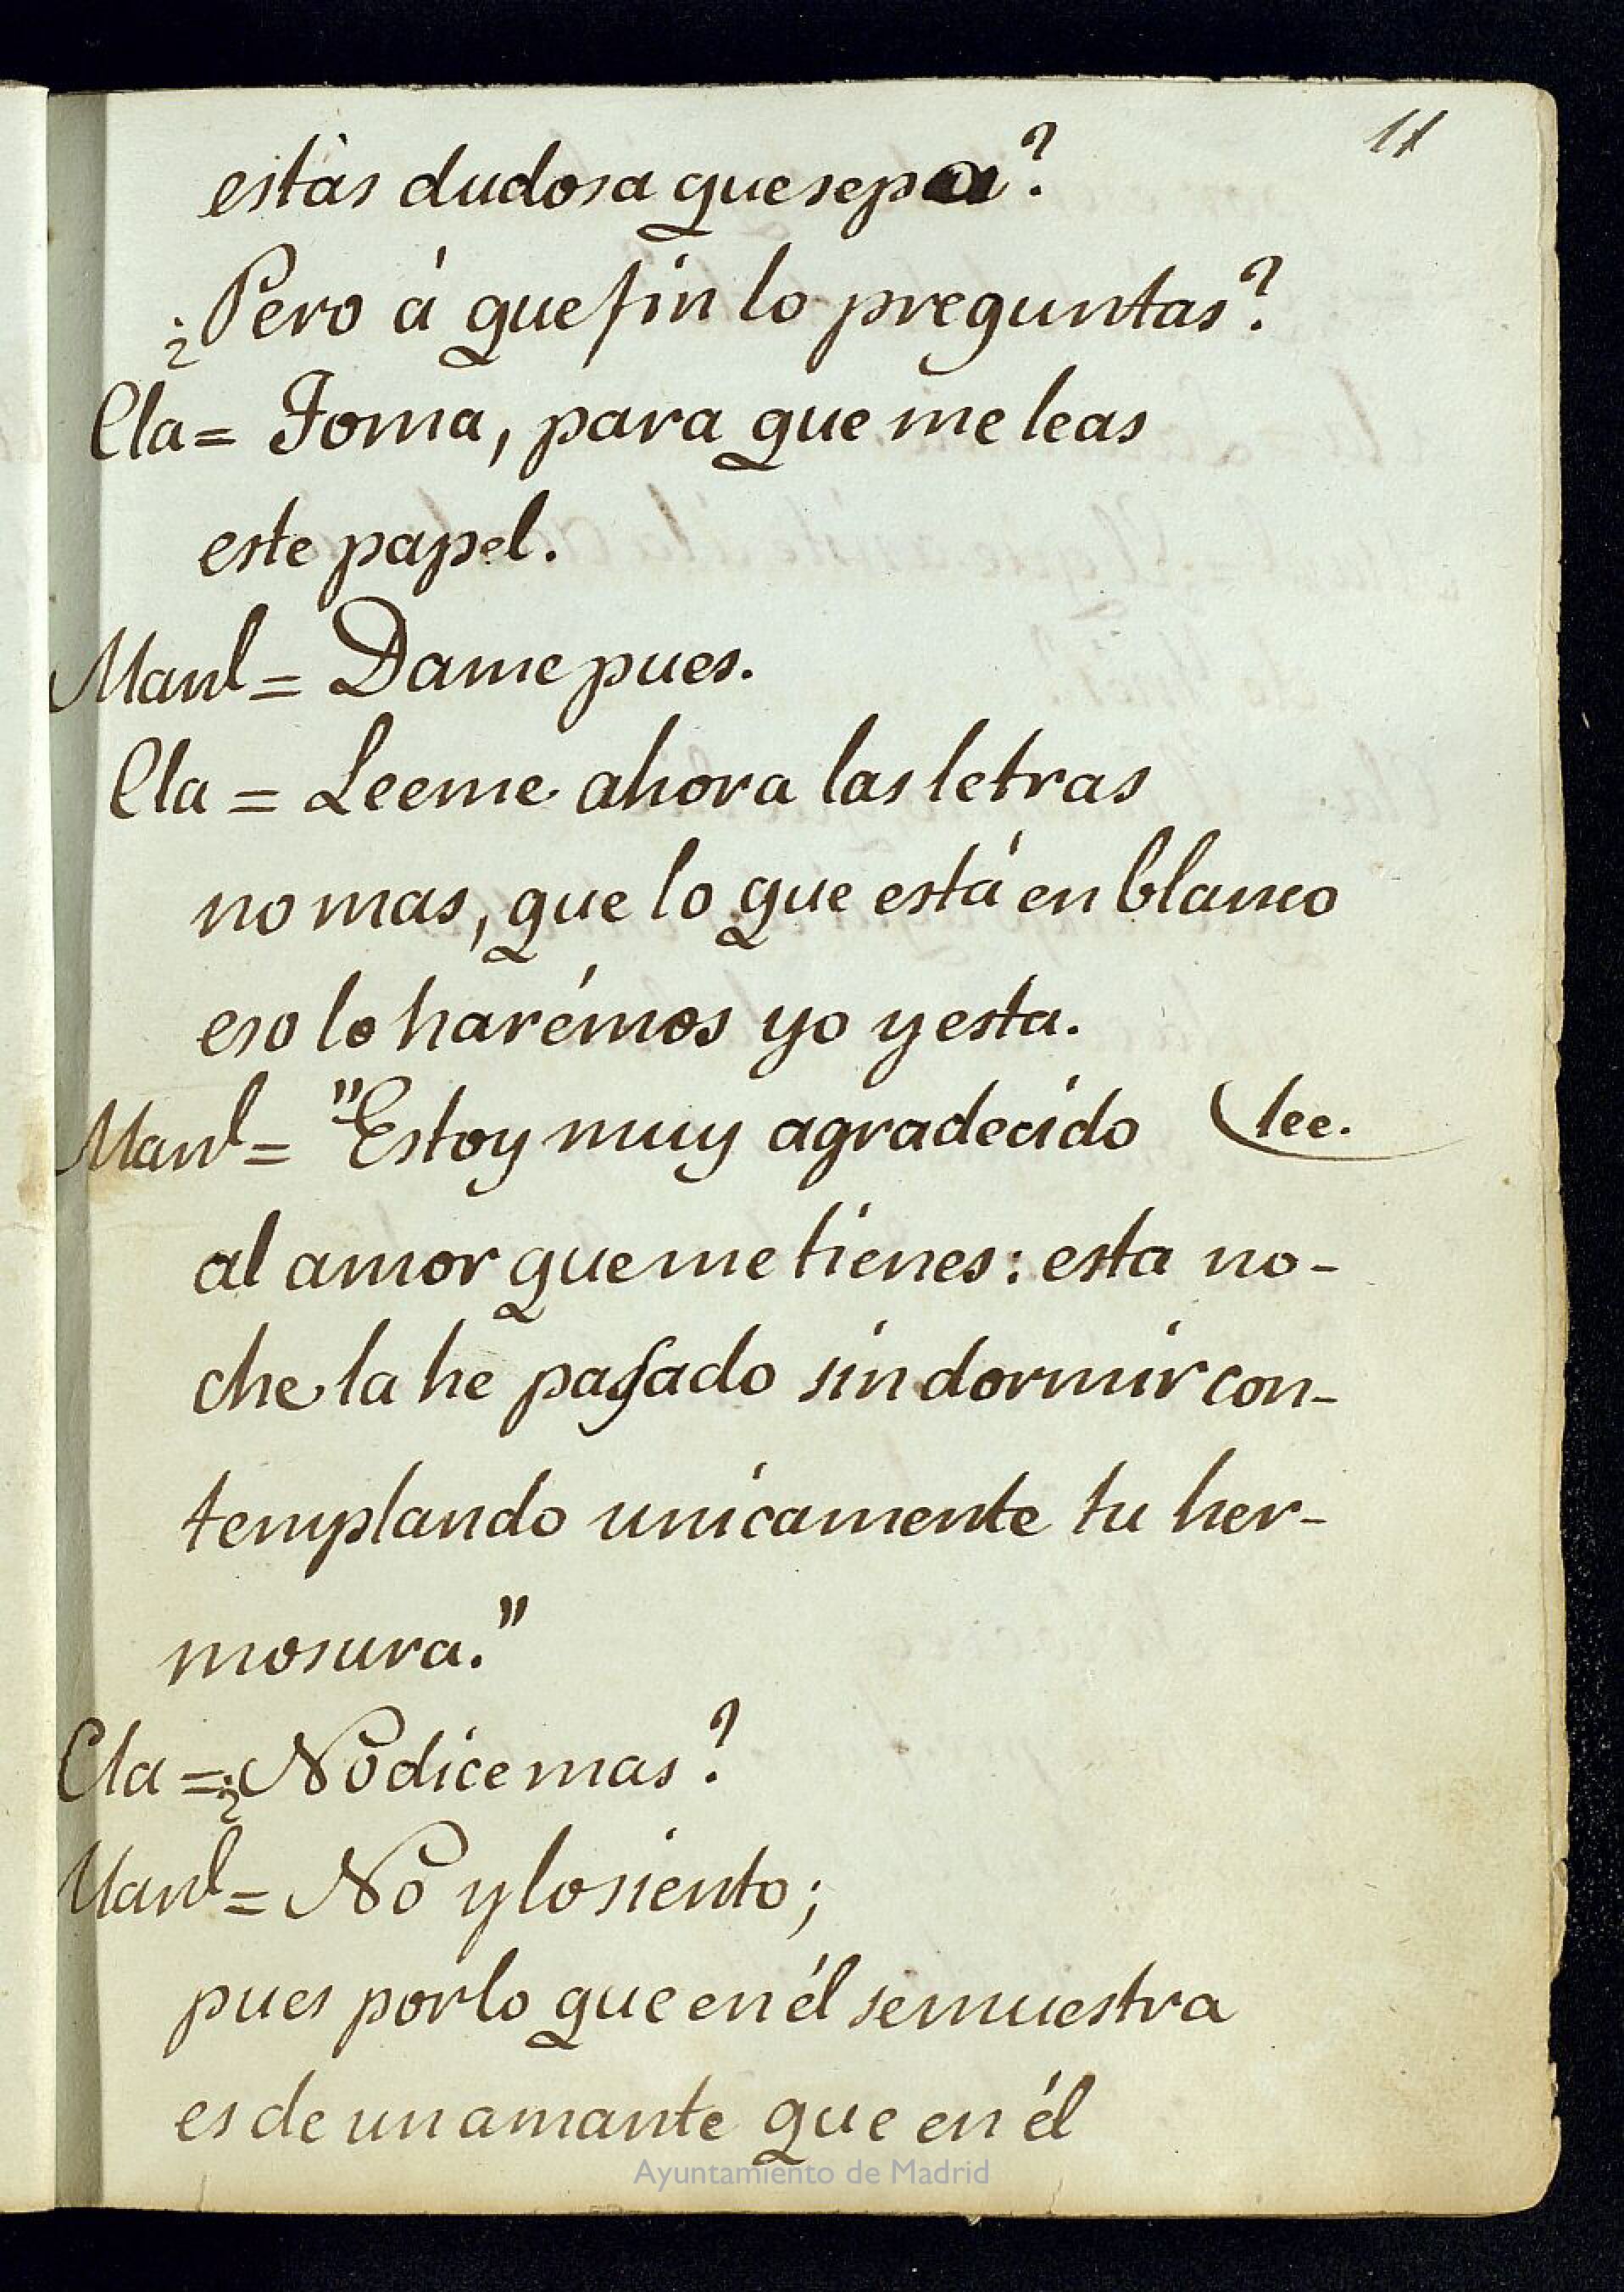 11
estás dudosa que sepa?
¿Pero á que fin lo preguntas?
Cla= Toma, para que me leas
este papel.
Manl= Dame pues.
Cla= Leeme ahora las letras
no mas, que lo que está en blanco
eso lo harémos yo y esta.
Manl= "Estoy muy agradecido (lee.
al amor que me tienes: esta no-
che la he pasado sin dormir con-
templando unicamente tu her-
mosura."
Cla=¿No dice mas?
Manl= No y lo siento;
pues por lo que en él se muestra
es de un amante que en él
Ayuntamiento de Madrid